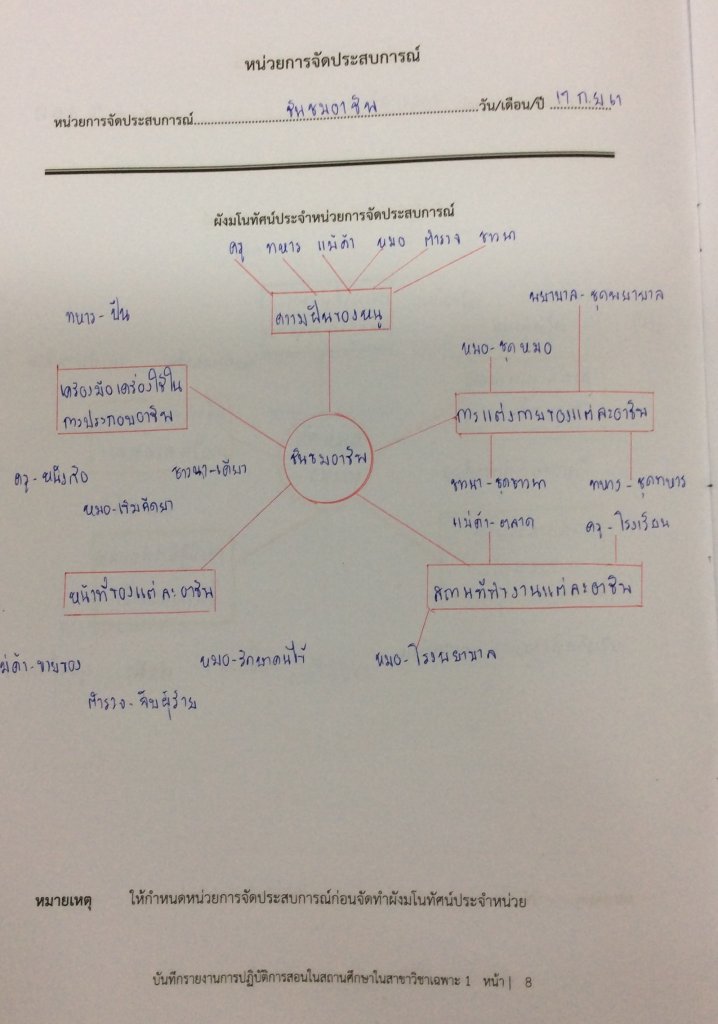 หน่วยการจัดประสบการณ์
หน่วยการจัดประสบการณ์ ชื่นชมอาชีพ วัน/เดือน/ปี 17 ก.ย 61
ผังมโนทัศน์ประจำหน่วยการจัดประสบการณ์
ครู ทหาร แม่ค้า หมอ ตำรวจ ชาวนา
ความฝันของหนู
พยาบาล-ชุดพยาบาล
ทหาร-ปืน
หมอ-ชุดหมอ
เครื่องมือเครื่องใช้ใน
การประกอบอาชีพ
การแต่งกายของแต่ละอาชีพ
ชื่นชมอาชีพ
ครู-หนังสือ
ชาวนา-เคียว
หมอ-เข็มฉีดยา
ชาวนา-ชุดชาวนา
ทหาร-ชุดทหาร
แม่ค้า-ตลาด
ครู-โรงเรียน
หน้าที่ของแต่ละอาชีพ
สถานที่ทำงานแต่ละอาชีพ
แม่ค้า-ขายของ
หมอ-รักษาคนไข้
หมอ-โรงพยาบาล
ตำรวจ-จับผู้ร้าย
หมายเหตุ ให้กำหนดหน่วยการจัดประสบการณ์ก่อนจัดทำผังมโนทัศน์ประจำหน่วย
บันทึกรายงานการปฏิบัติการสอนในสถานศึกษาในสาขาวิชาเฉพาะ 1 หน้า | 8